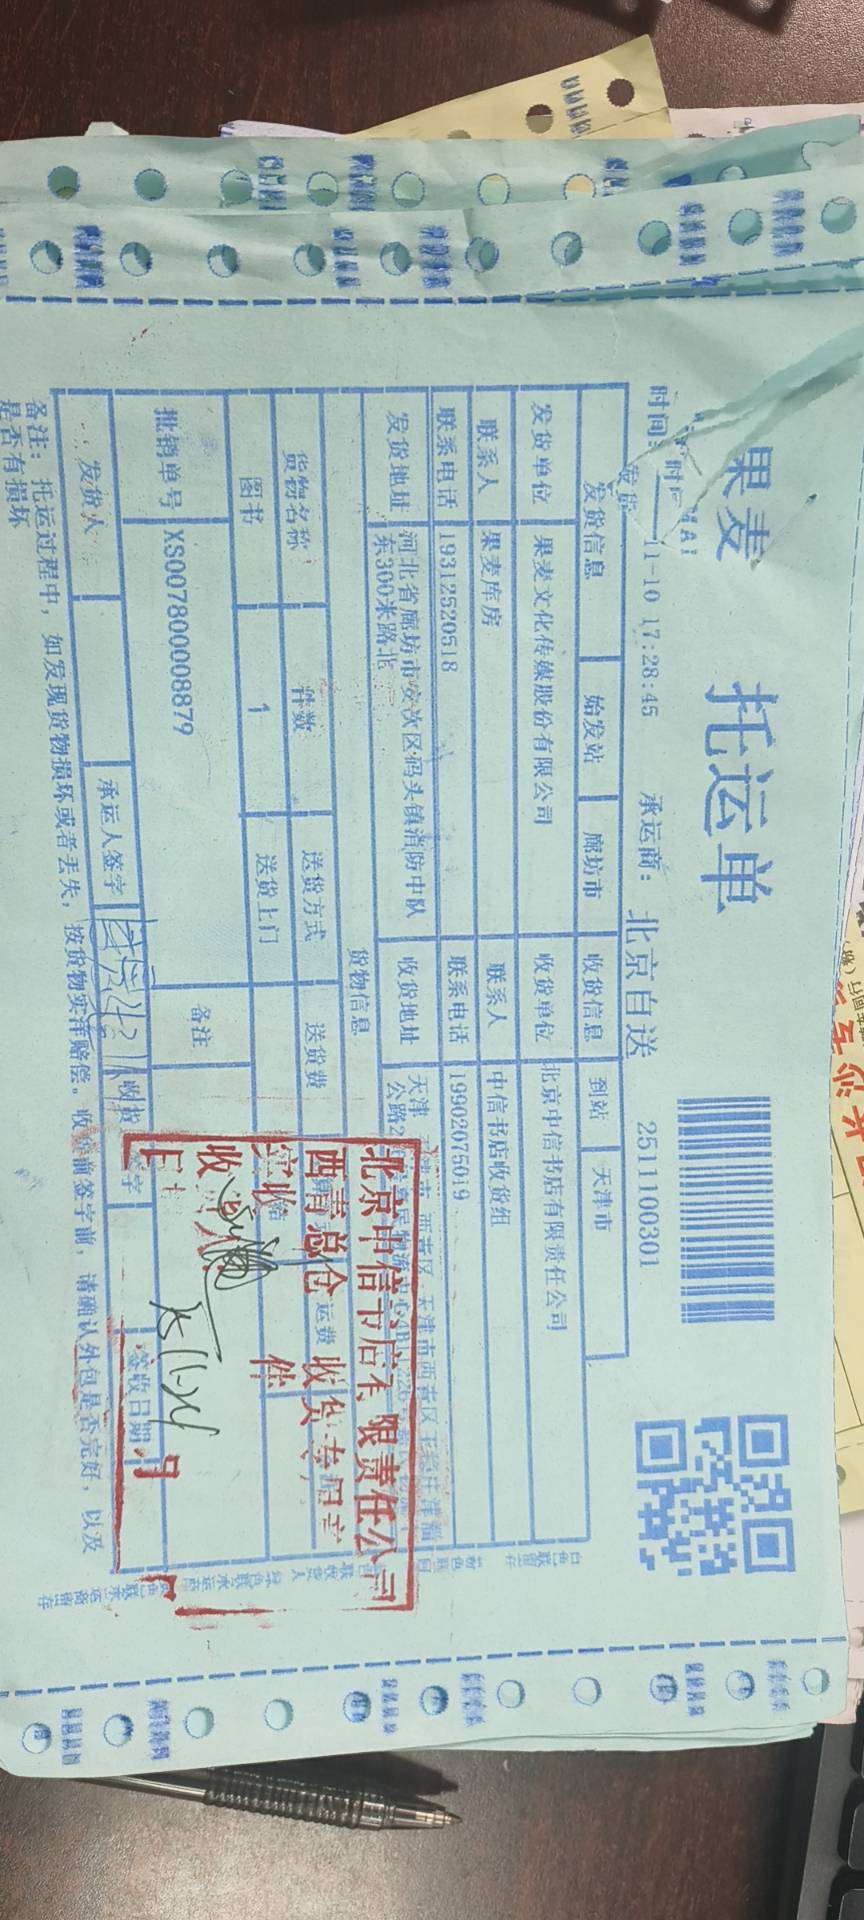 果麦 托运单
2511100301
时间: 11-10 17:28:45 承运商: 北京自送
发货信息 始发站 廊坊市 收货信息 到站 天津市
发货单位 果麦文化传媒股份有限公司 收货单位 北京中信书店有限责任公司
联系人 果麦库房 联系人 中信书店收货组
联系电话 19312520518 联系电话 19902075019
发货地址 河北省廊坊市安次区码头镇消防中队
东300米路北
收货地址 天津 西青区 天津市西青区
公路2
货物信息
货物名称 件数 送货方式 送货费 运费
图书 1 送货上门
批销单号 XS007800008879 备注
发货人 承运人签字 收货 字 签收日期
备注: 托运过程中, 如发现货物损坏或者丢失, 按货物实洋赔偿。收货前签字前, 请确认外包是否完好, 以及
是否有损坏
北京中信书店有限责任公司
西青总仓 收货专用章
实收 件
收货人
日